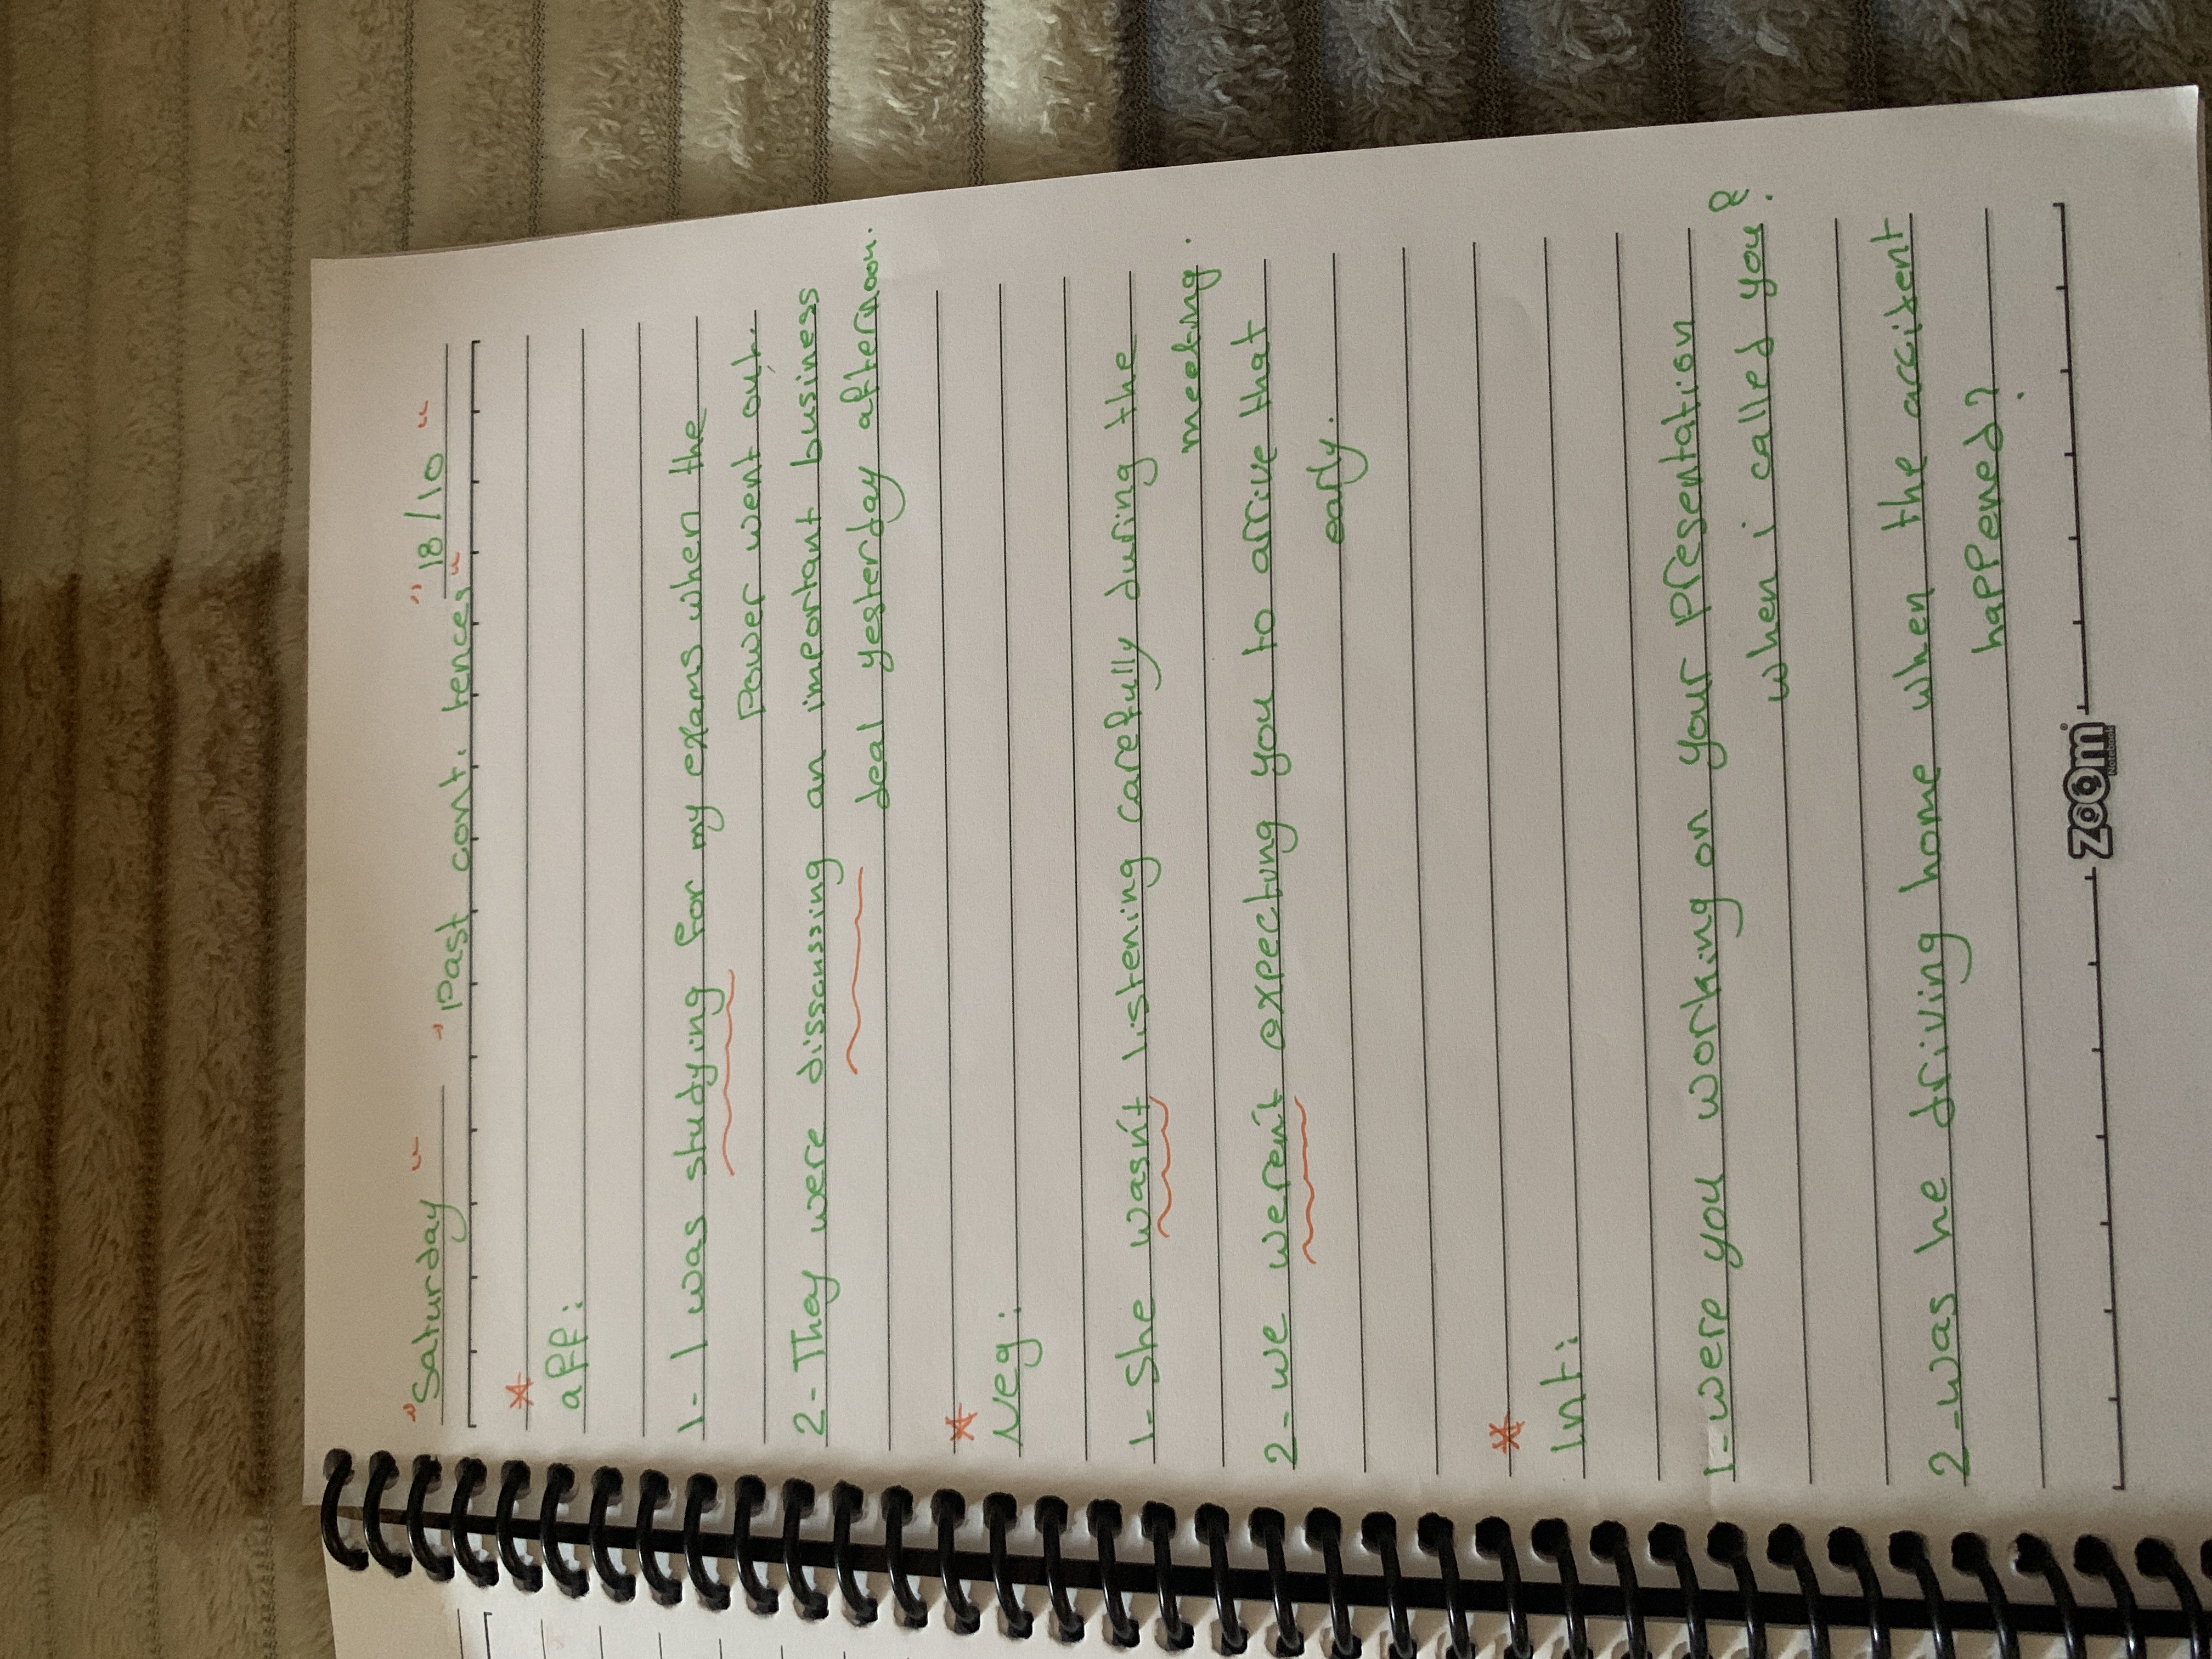 "Saturday" "18/10"
"Past cont. tences"
* aff:
1- I was studying for my exams when the
Power went out.
2- They were disscussing an important business
deal yesterday afternoon.
* Neg:
1- She wasn't listening carefully during the
meeting.
2- we weren't expecting you to arrive that
early.
* Int:
1- were you working on your presentation
when i called you?
2- was he driving home when the accident
happened?
zoom
Notebook